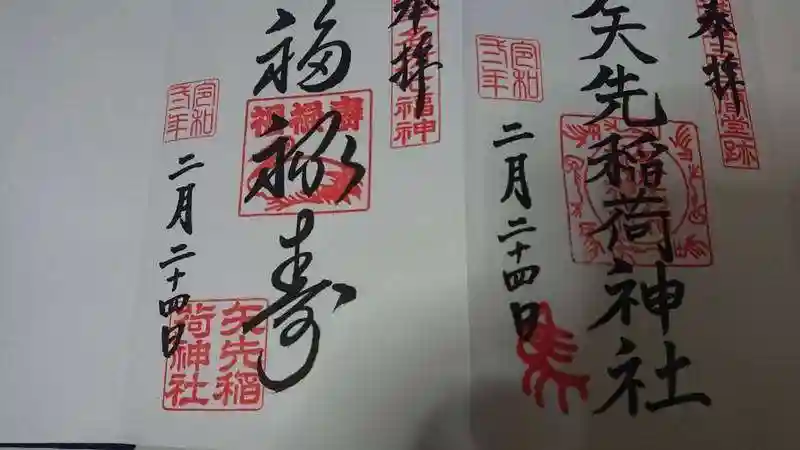 奉拝
堂跡
矢先稲荷神社
令和
弐年
二月二十四日
奉拝
福神
福禄寿
寿福禄
令和
弐年
二月二十四日
矢先稲
荷神社